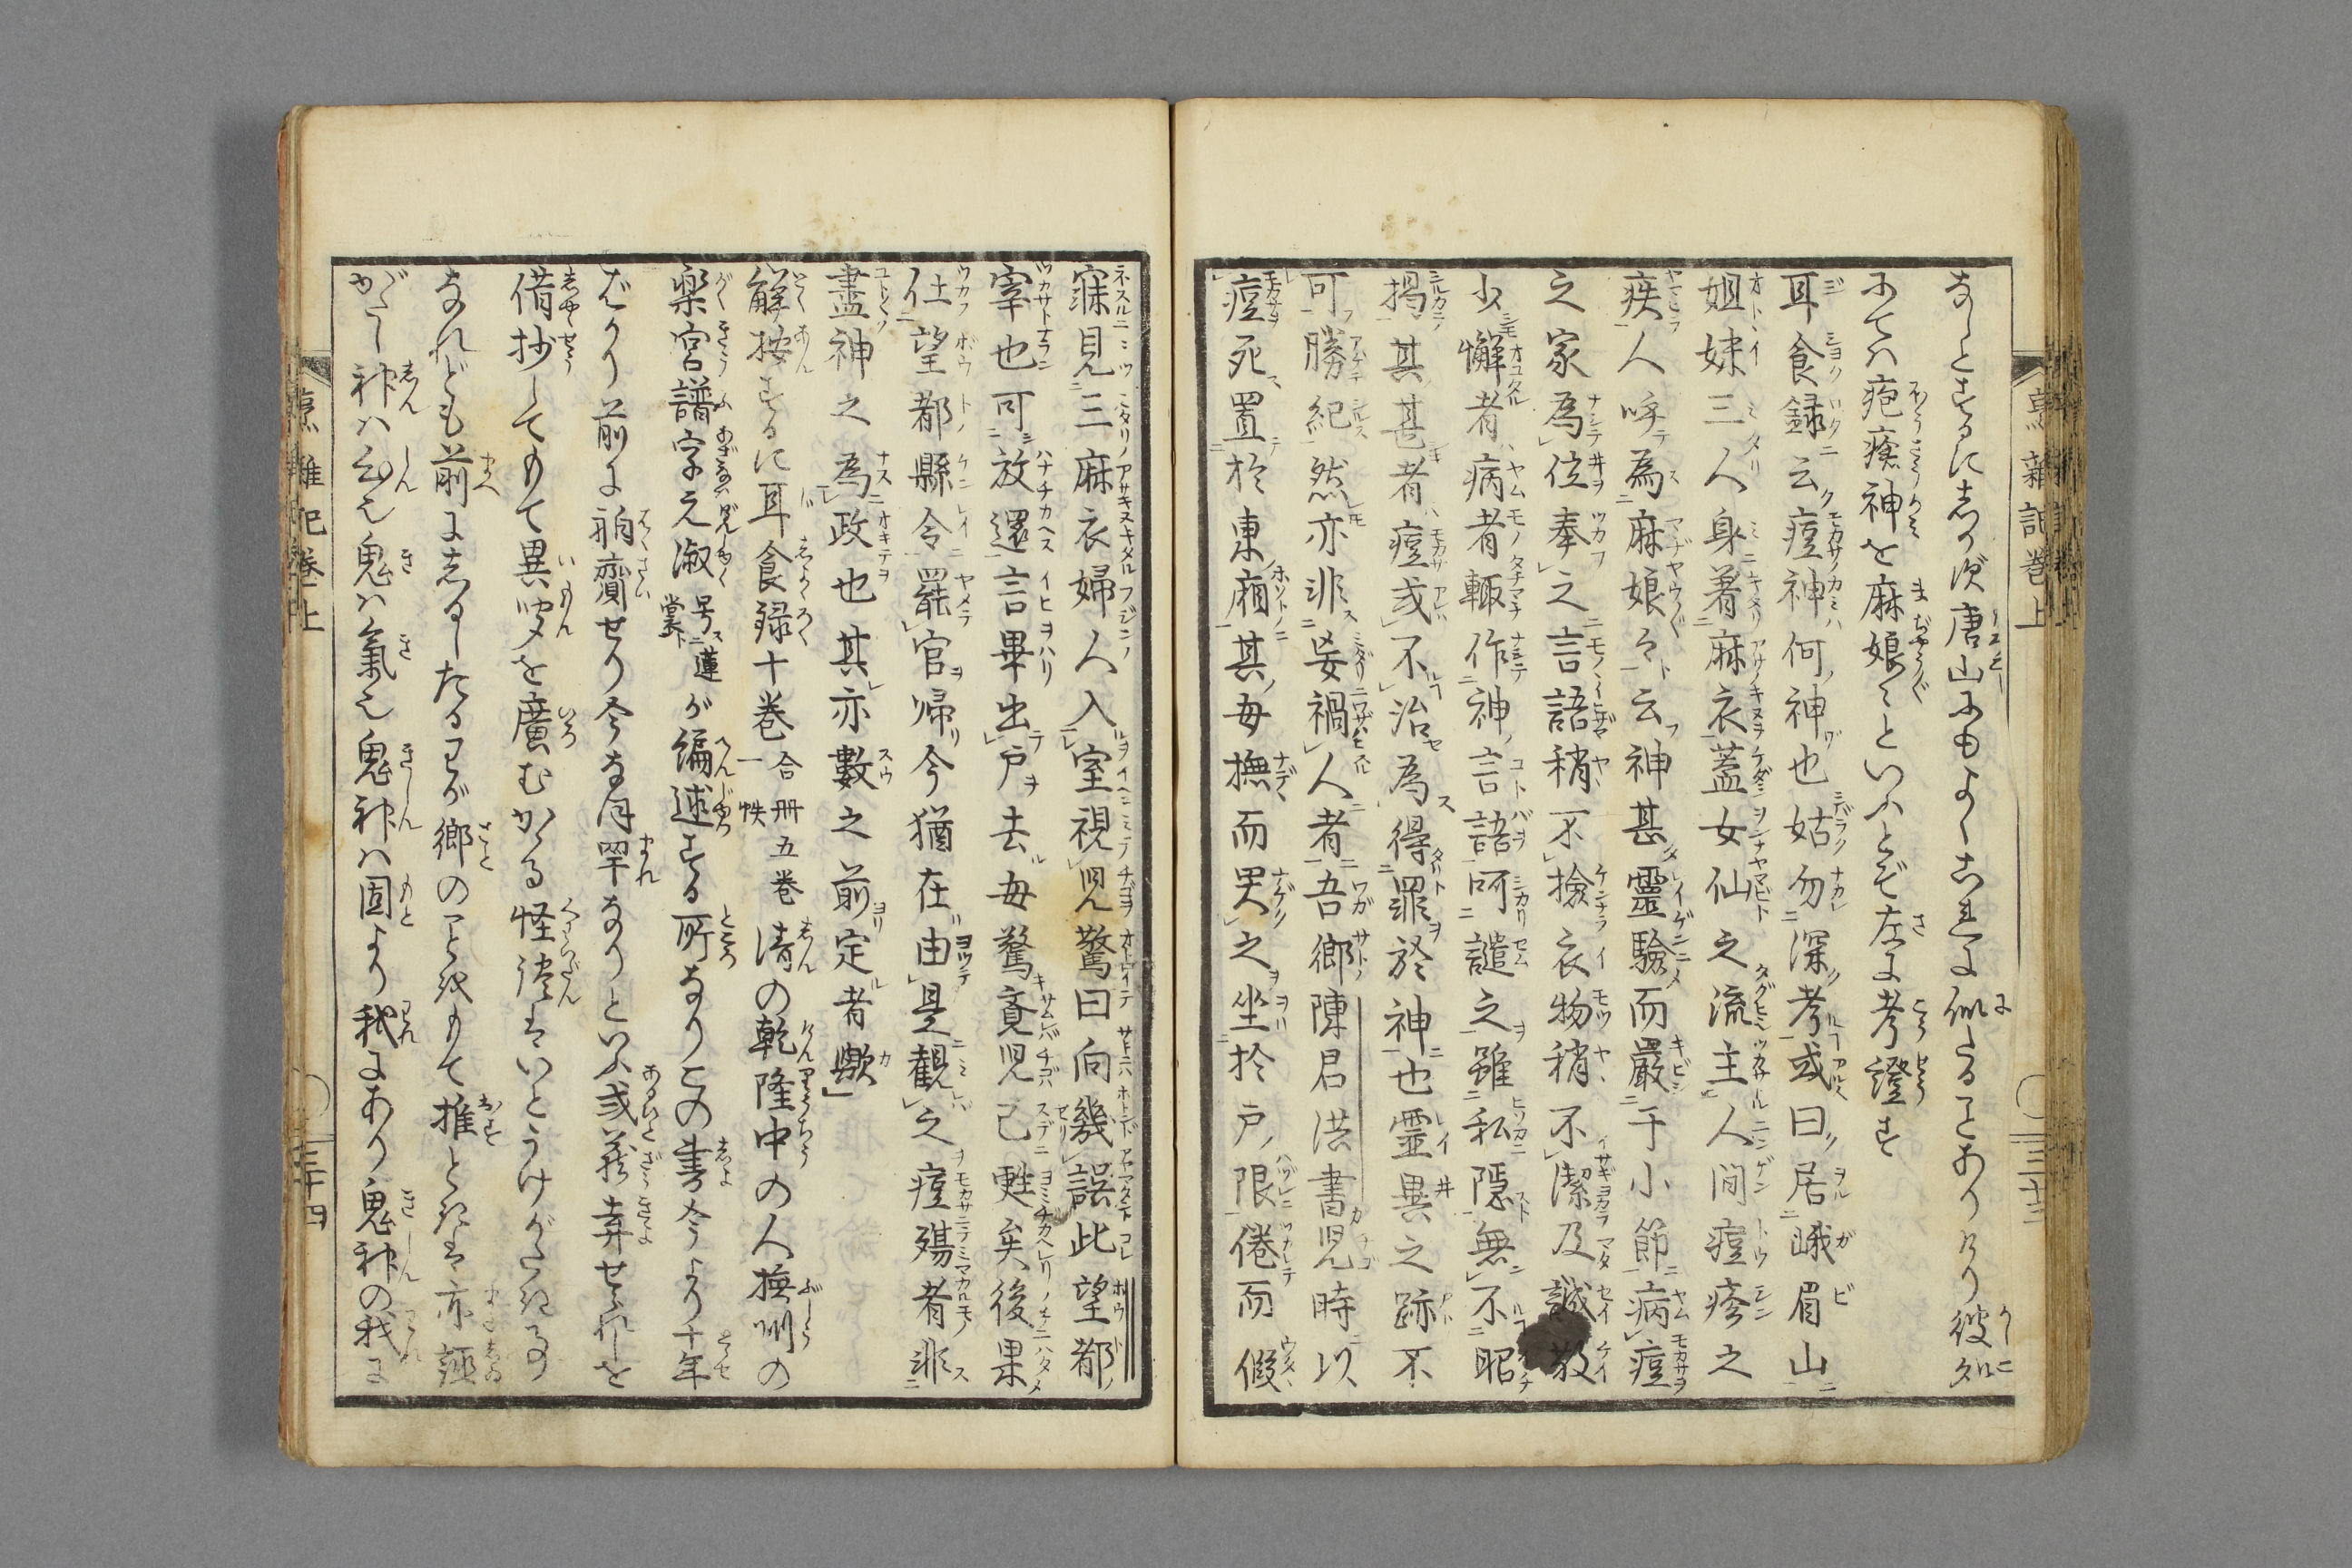 なしとするにしかず唐山にもよくこれに似たることありけり彼処
にては疱瘡神を麻娘々といふとぞ左に考證す
耳食録云痘神何神也姑勿深考或曰居峨眉山
姐妹三人身着麻衣蓋女仙之流主人間痘疹之
疾人呼為麻娘々云神甚靈驗而嚴于小節病痘
之家為位奉之言語稍不撿衣物稍不潔及誠敬
少懈者病者輙作神言語呵譴之雖私隠無不昭
掲其甚者痘或不治為得罪於神也霊異之跡不
可勝紀然亦非妄禍人者吾郷陳君洪書児時以
痘死置於東廂其母撫而哭之坐於戸限倦而假
寐見三麻衣婦人入室視児驚曰向幾誤此望都
宰也可放還言畢出戸去母驚寤児已甦矣後果
仕望都縣令罷官帰今猶在由是観之痘殤者非
盡神之為政也其亦數之前定者歟
解按ずるに耳食録十巻合五巻一帙清の乾隆中の人撫州の
楽宮譜字元淑号蓮裳が編述する所なりこの書今より十年
ばかり前に舶齎せり今なほ罕なりといふ或蔵弆せられしを
借抄してもて異聞を廣むかゝる怪談はいとうけがたきもの
なれども前にしるしたるわが郷のことをもて推ときは亦誣
がたし神は心也鬼は氣也鬼神は固より我にあり鬼神の我に
烹雜記巻上
三十三
烹雜記巻上
三十四